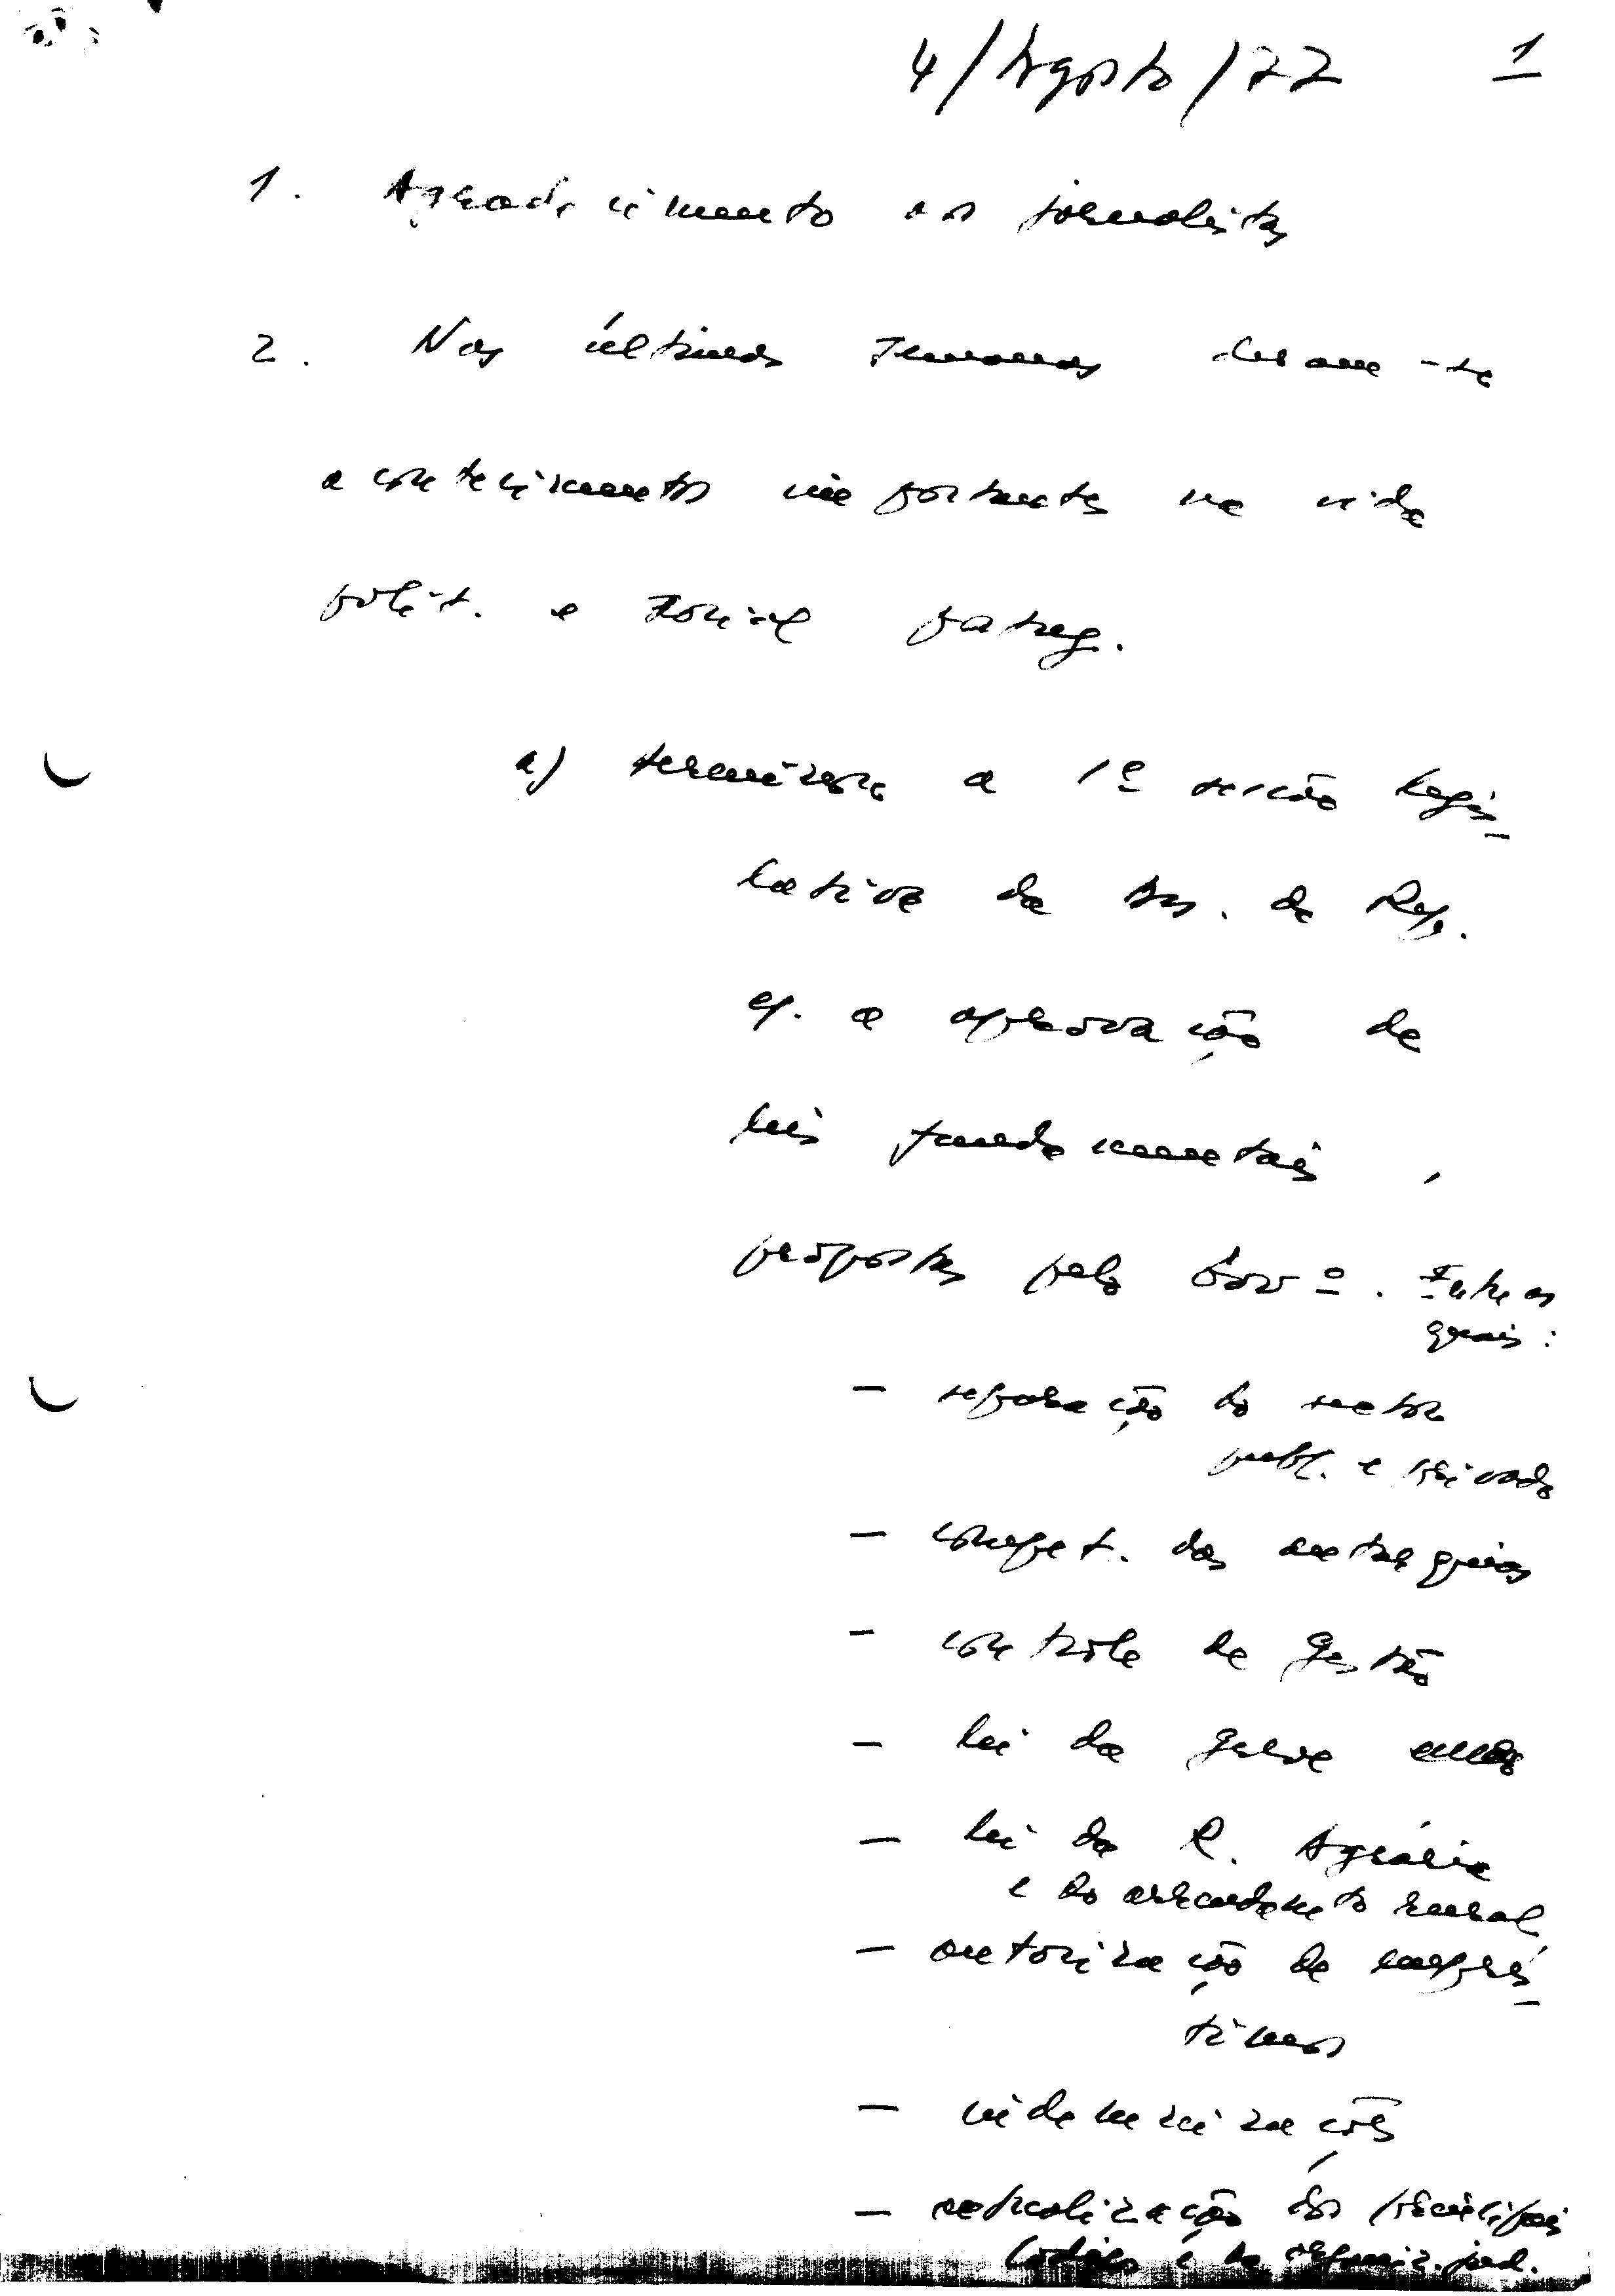 4/Agosto/77 1
1. Agradecimento aos jornalistas
2. Nas últimas semanas deram-se
acontecimentos importantes na vida
polít. e social portug.
a) terminou a 1ª sessão legis-
lativa da Ass. da Rep.
c/. a aprovação de
leis fundamentais,
propostas pelo Govº. Entre as
quais:
- separação do sector
publ. e privado
- compet. das autarquias
- controle de gestão
- lei da greve
- lei da R. Agrária
e do arrendamento rural
- autorização de emprés-
timos
- indemnizações
- actualização dos principais
Códigos e da organiz. jud.